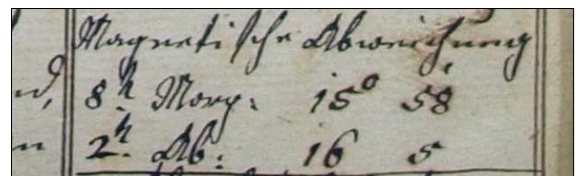 Magnetische Abweichung
d, 8.h Morg: 15° 58'
n 2.h Ab: 16 5